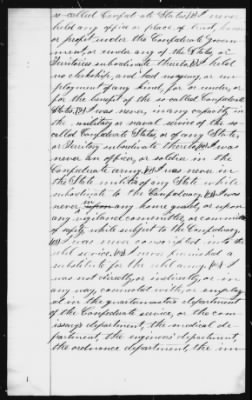 so-called Confederate States, I never
held any office or place of trust, honor
or profit under the Confederate Govern-
ment, or under any of the States, or
Territories subordinate thereto, I held
no clerkship, and had no agency, or em-
ployment of any kind, for or under, or
for the benefit of the so called Confederate
States, I was never, in any capacity, in
the military or naval service of the so
called Confederate States, or of any State,
or Territory subordinate thereto, I was
never an officer, or soldier in the
Confederate army, I was never in
the State militia of any State while
subordinate to the Confederacy, I was
never, in any home guards, or upon
any vigilance committee, or committee
of safety while subject to the Confederacy
I was never conscripted into the
rebel service, I never furnished a
substitute for the rebel army, I
was not directly, or indirectly, or in
any way, connected with, or employ-
ed in the quartermaster's department
of the Confederate service, or the com-
issary's department, the medical de-
partment, the engineers' department,
the ordnance department, the im